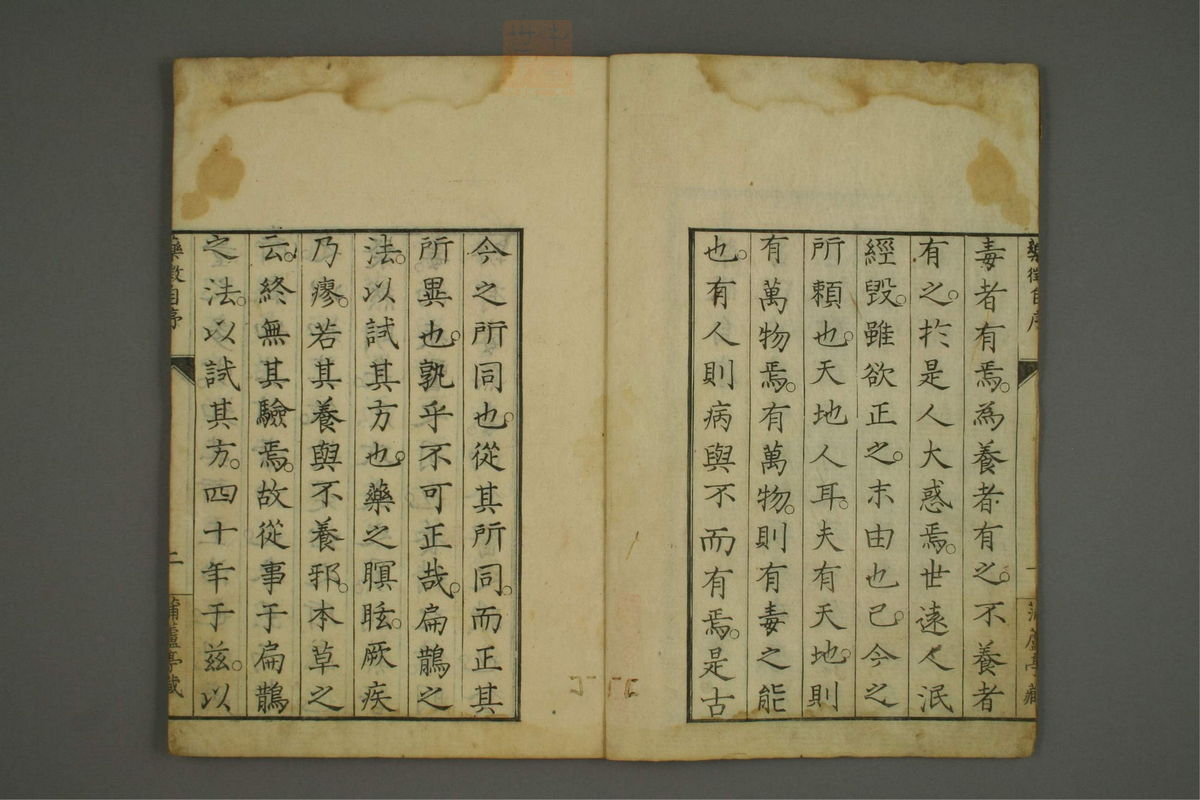 藥徵自序
毒者有焉。為養者有之。不養者
有之。於是人大惑焉。世遠人泯
經毀。雖欲正之。末由也已。今之
所賴也。天地人耳。夫有天地。則
有萬物焉。有萬物。則有毒之能
也。有人則病與不而有焉。是古
今之所同也。從其所同。而正其
所異也。孰乎不可正哉。扁鵲之
法。以試其方也。藥之瞑眩。厥疾
乃瘳。若其養與不養邪。本草之
云。終無其驗焉。故從事于扁鵲
之法。以試其方。四十年于茲。以
藥徵自序
二
蒲蘆亭藏